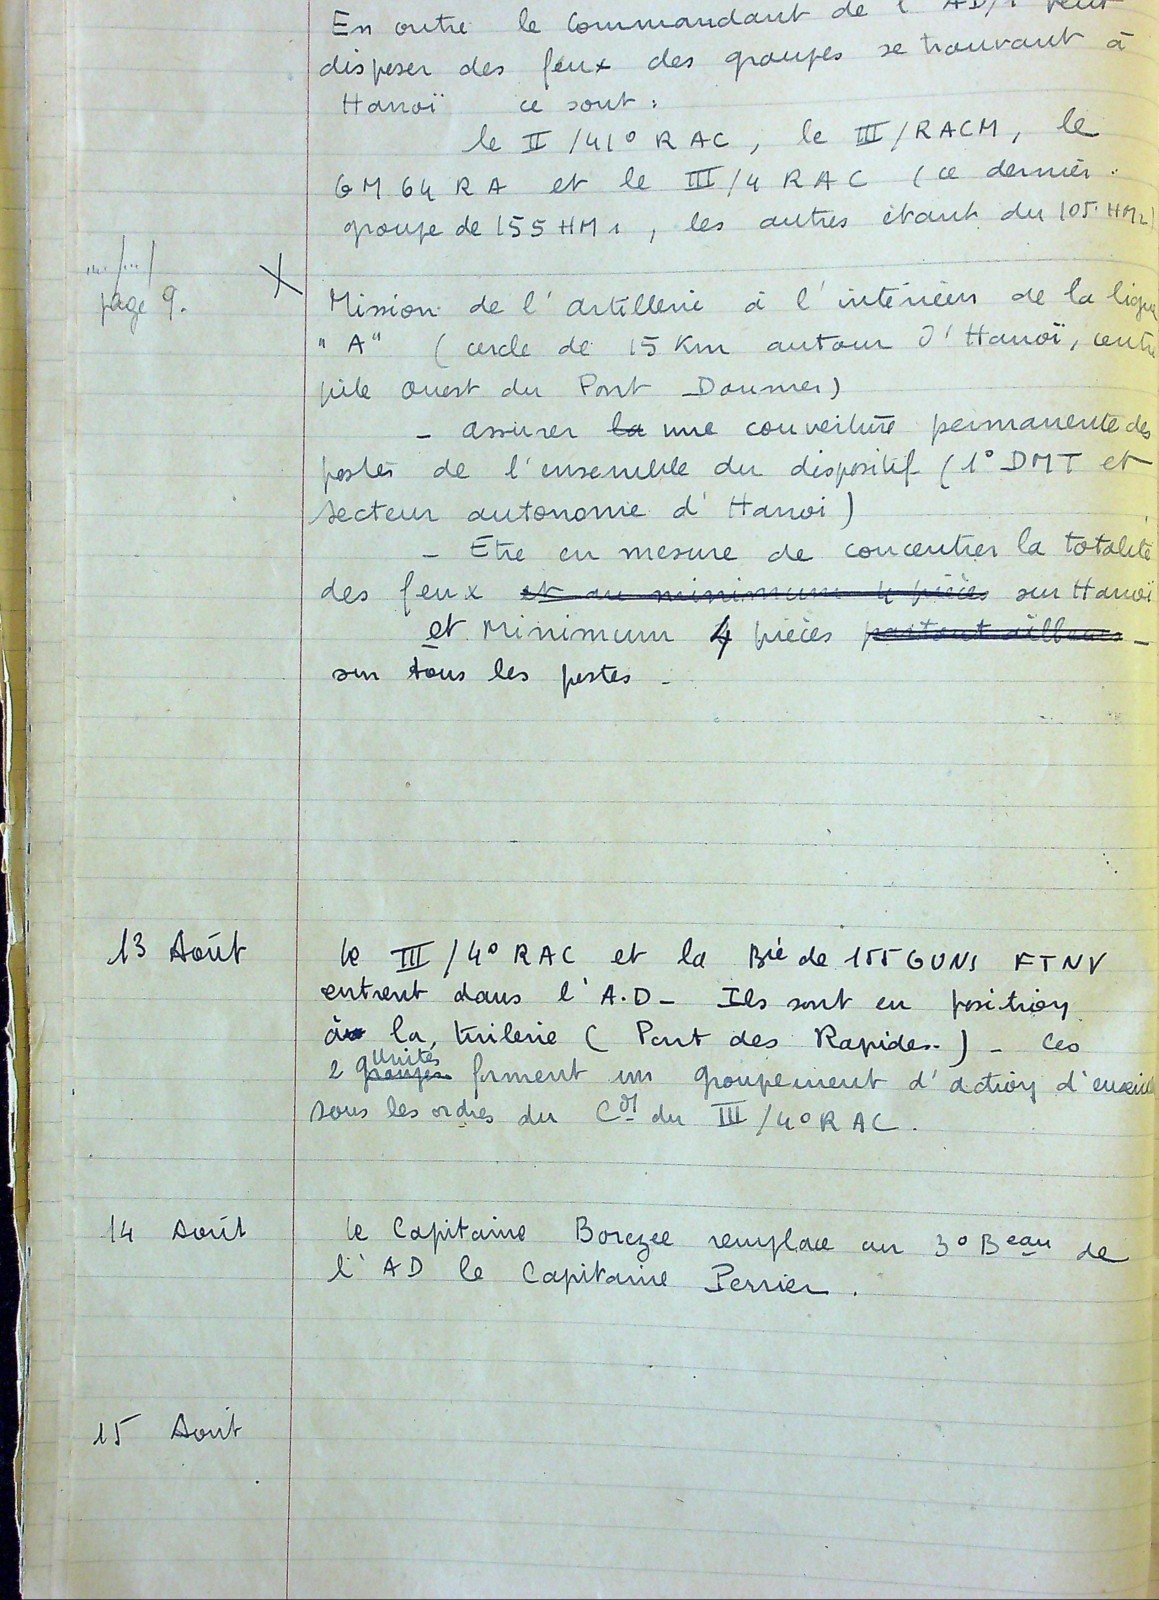 En outre le Commandant de l'AD/1 peut
disposer des feux des groupes se trouvant à
Hanoï ce sont :
le II /41° RAC, le III/RACM, le
GM 64 RA et le III/4 RAC (ce dernier
groupe de 155 HM1, les autres étant du 105 HM2)
.../.../
page 9.
X Mission de l'artillerie à l'intérieur de la ligne
"A" (cercle de 15 Km autour d'Hanoï, centre
pile Ouest du Pont Doumer)
- assurer la une couverture permanente des
postes de l'ensemble du dispositif (1° DMT et
secteur autonome d'Hanoi)
- Etre en mesure de concentrer la totalité
des feux et au minimum 4 pièces sur Hanoï
et Minimum 4 pièces partout ailleurs -
sur tous les postes -
13 Août le III/4° RAC et la Bie de 155 GUNS FTNV
entrent dans l'A.D - Ils sont en position
à la tuilerie (Pont des Rapides.) - Ces
Unités
2 groupes forment un groupement d'action d'ensemble
sous les ordres du Cdt du III/4° RAC.
14 Août le Capitaine Borezee remplace au 3° Beau de
l'AD le Capitaine Perrier.
15 Août